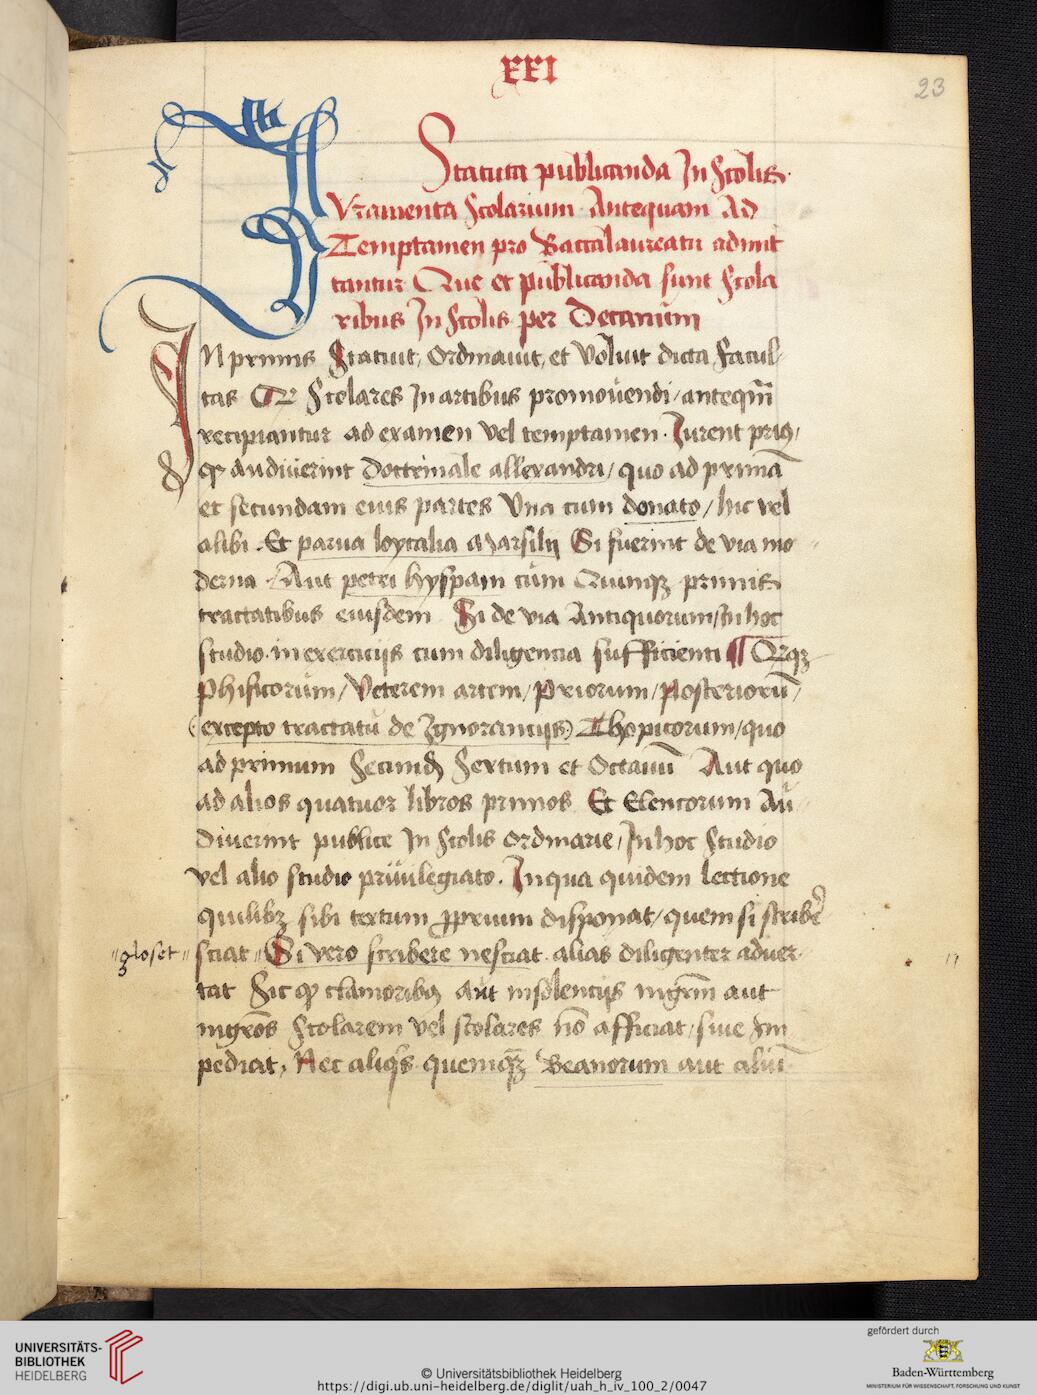 XXI
23
Statuta publicanda In Scolis
IVramenta Scolarium Antequam Ad
Temptamen pro Baccalaureatu admit
tantur Que et publicanda sunt Scola
ribus In Scolis per Decanum
IN primis Statuit, Ordinauit, et Voluit dicta Facul
tas Qr Scolares In artibus promouendi / anteqm̄
recipiantur ad examen vel temptamen. Iurent priꝰ /
qꝫ audiuerint doctrinale allexandri / quo ad primā
et secundam eius partes Vna cum donato / hic vel
alibi. Et parua loycalia Marsilij Si fuerint de via mo
derna. Aut petri hyspani cum Quinqꝫ primis
tractatibus eiusdem Si de via Antiquorum / In hoc
studio in exercicijs cum diligencia sufficienti ¶ Qꝫqꝫ
Phisicorum / Veterem artem / Priorum / Posteriorū /
(excepto tractatu de Ignorancijs) Thopicorum / quo
ad primum Secund Sextum et Octauū Aut quo
ad alios quatuor libros primos Et Elencorum Au
diuerint publice In Scolis Ordinarie / In hoc Studio
vel alio studio priuilegiato. In qua quidem lectione
quilibꝫ sibi textum ꝓprium disponat / quem si scriberē
"gloset" sciat " Si vero scribere nesciat. alias diligenter aduer
tat Sic qꝫ clamoribꝰ aut insolencijs mgrm̄ aut
mgros Scolarem vel scolares nō afficiat / siue Im
pediat, Nec aliqs quemqꝫ Beanorum aut aliū
UNIVERSITÄTS-
BIBLIOTHEK
HEIDELBERG
© Universitätsbibliothek Heidelberg
https://digi.ub.uni-heidelberg.de/diglit/uah_h_iv_100_2/0047
gefördert durch
Baden-Württemberg
MINISTERIUM FÜR WISSENSCHAFT, FORSCHUNG UND KUNST